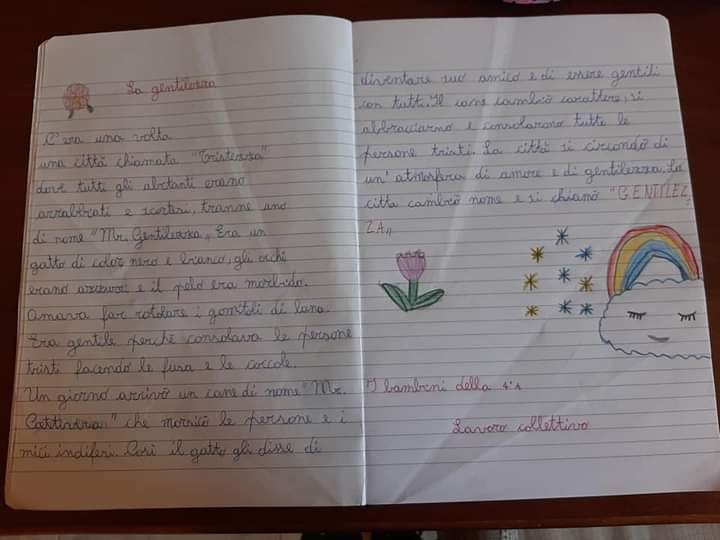 La gentilezza
C'era una volta
una città chiamata "Tristezza"
dove tutti gli abitanti erano
arrabbiati e scortesi, tranne uno
di nome "Mr. Gentilezza„ Era un
gatto di color nero e bianco, gli occhi
erano azzurri e il pelo era morbido.
Amava far rotolare i gomitoli di lana.
Era gentile perché consolava le persone
tristi facendo le fusa e le coccole.
Un giorno arrivò un cane di nome "Mr.
Cattiveria„ che morsicò le persone e i
mici indifesi. Così il gatto gli disse di
diventare suo amico e di essere gentili
con tutti. Il cane cambiò carattere, si
abbracciarono e consolarono tutte le
persone tristi. La città si circondò di
un'atmosfera di amore e di gentilezza. La
città cambiò nome e si chiamò "GENTILEZ
ZA„
I bambini della 4ª
Lavoro collettivo